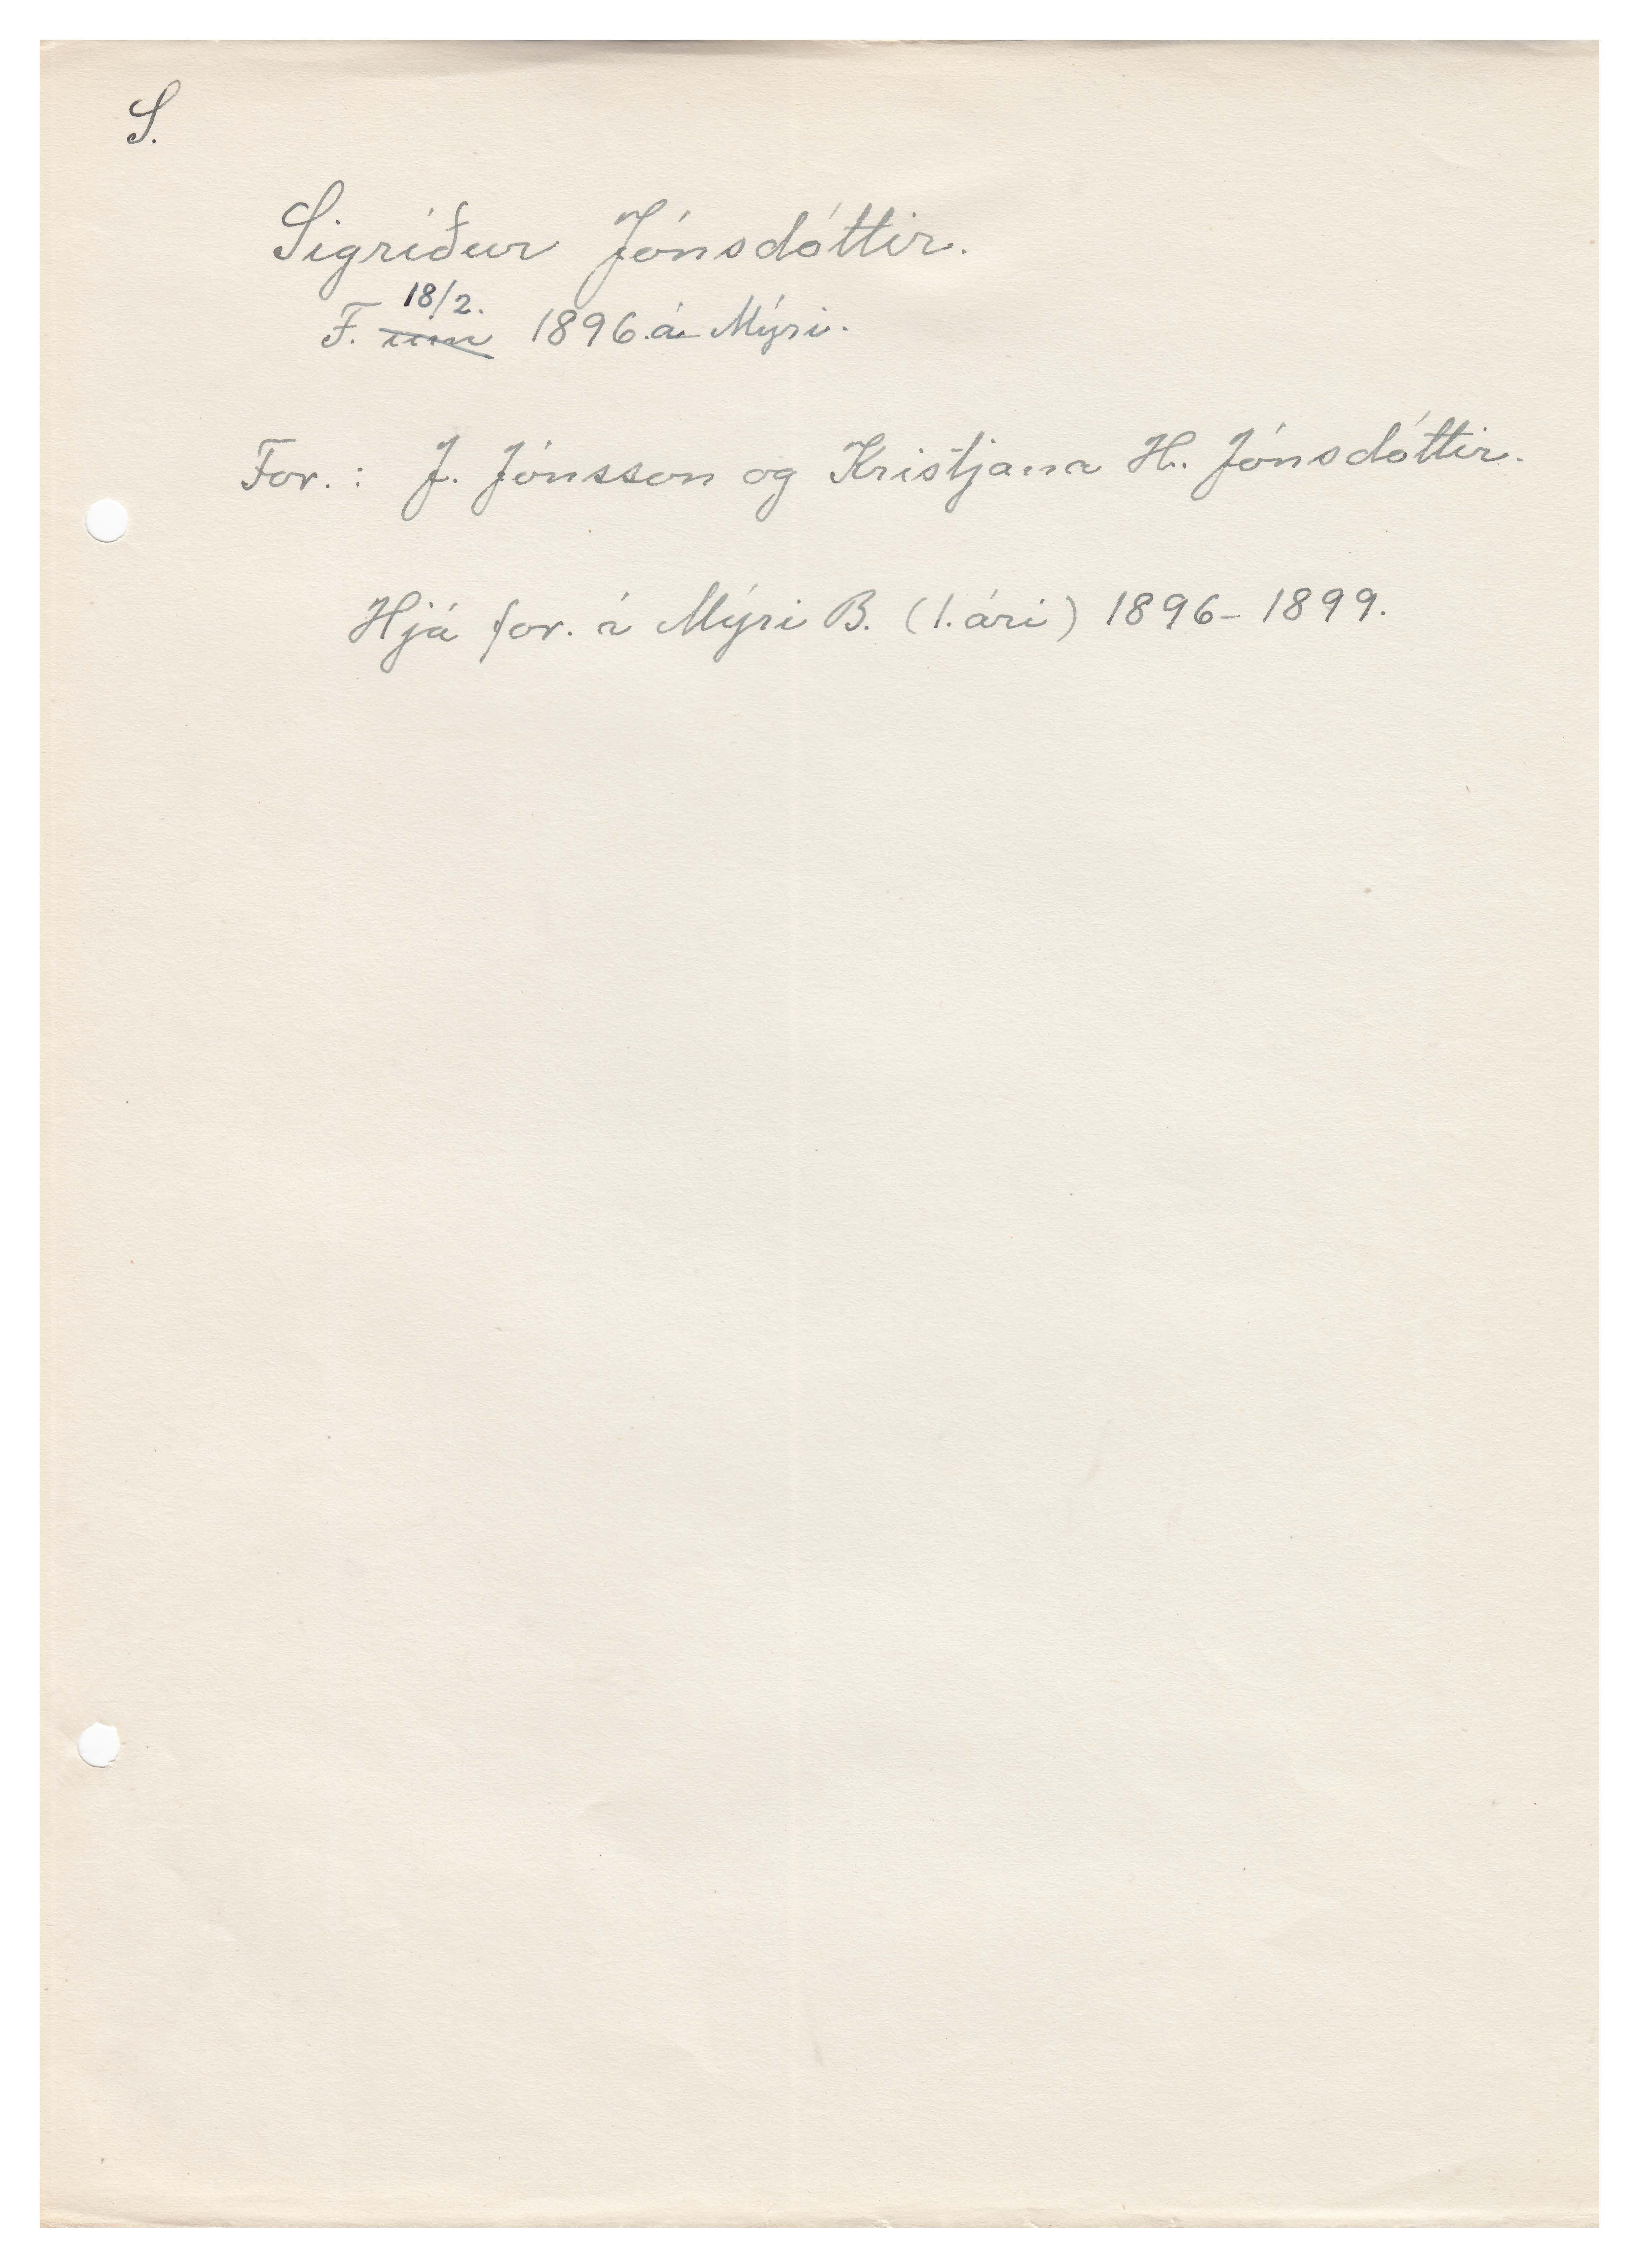 S.
Sigríður Jónsdóttir.
18/2.
F. um 1896 á Mýri.
For.: J. Jónsson og Kristjana H. Jónsdóttir.
Hjá for. á Mýri B. (1. ári) 1896-1899.